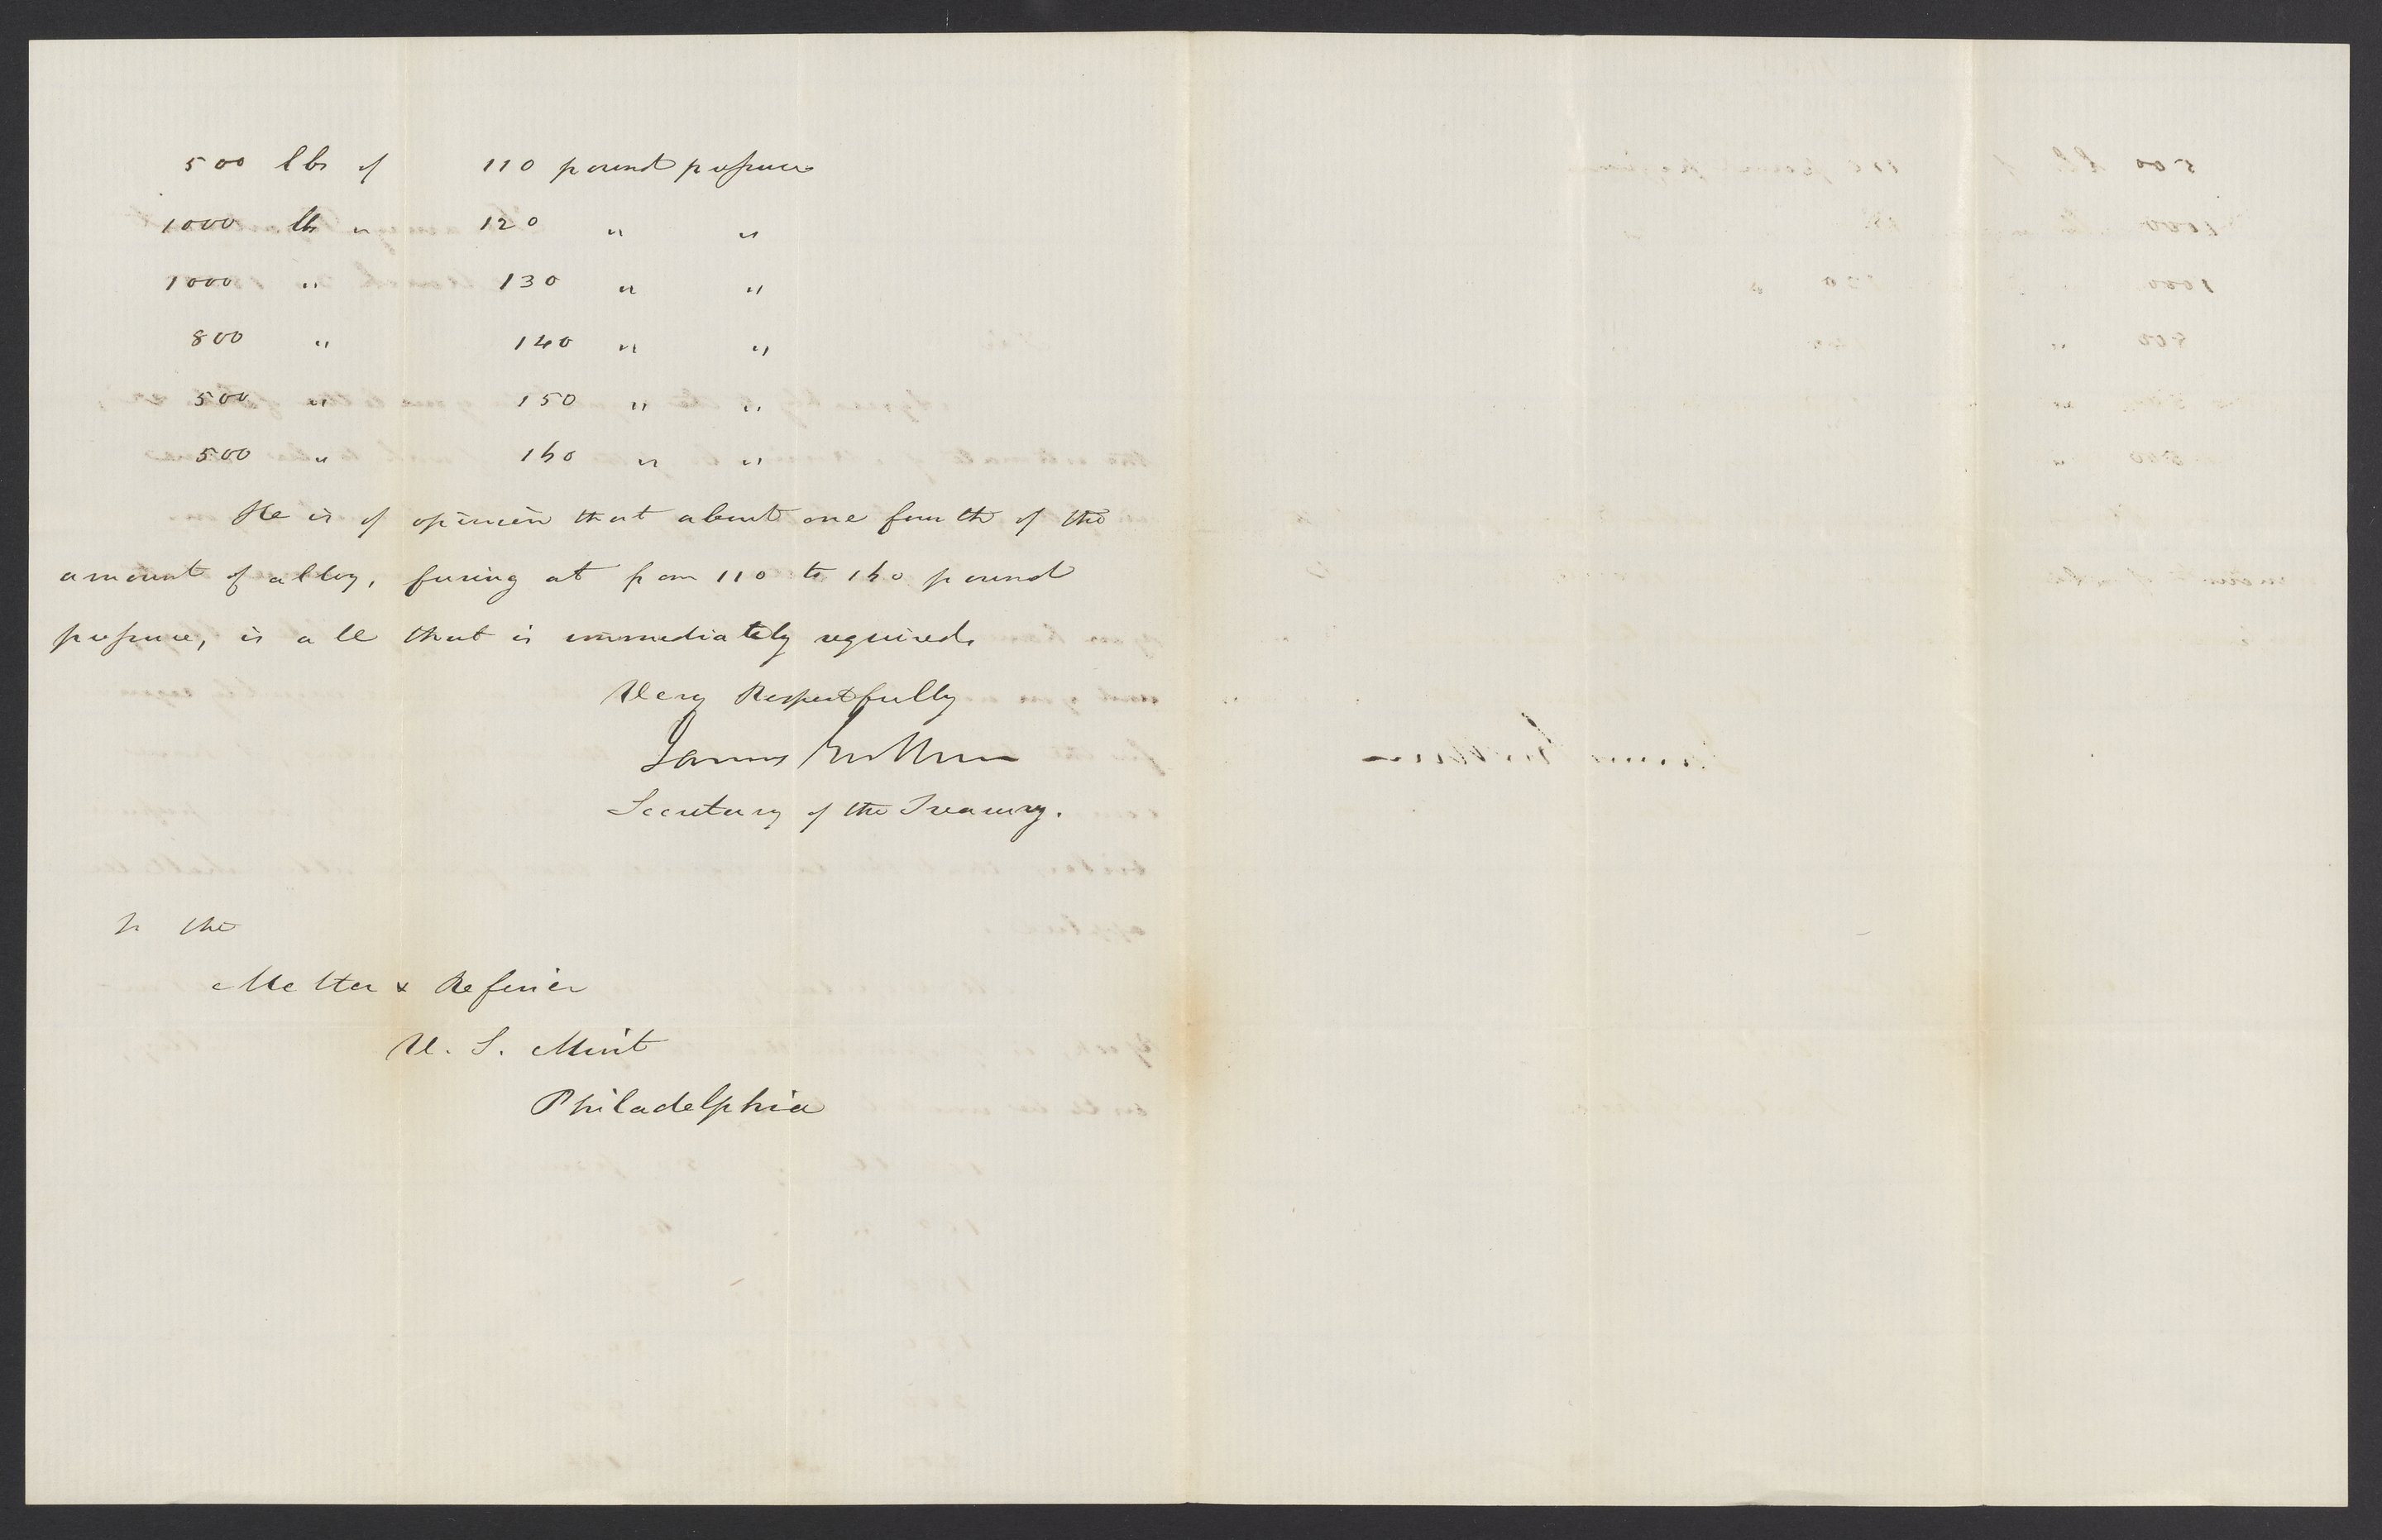 500 lbs of 110 pound pressure
1000 lbs " 120 " "
1000 " 130 " "
800 " 140 " "
500 " 150 " "
500 " 160 " "
He is of opinion that about one fourth of the
amount of alloy, fusing at from 110 to 160 pound
pressure, is all that is immediately required.
Very Respectfully
James Guthrie
Secretary of the Treasury.
To the
Melter & Refiner
U. S. Mint
Philadelphia